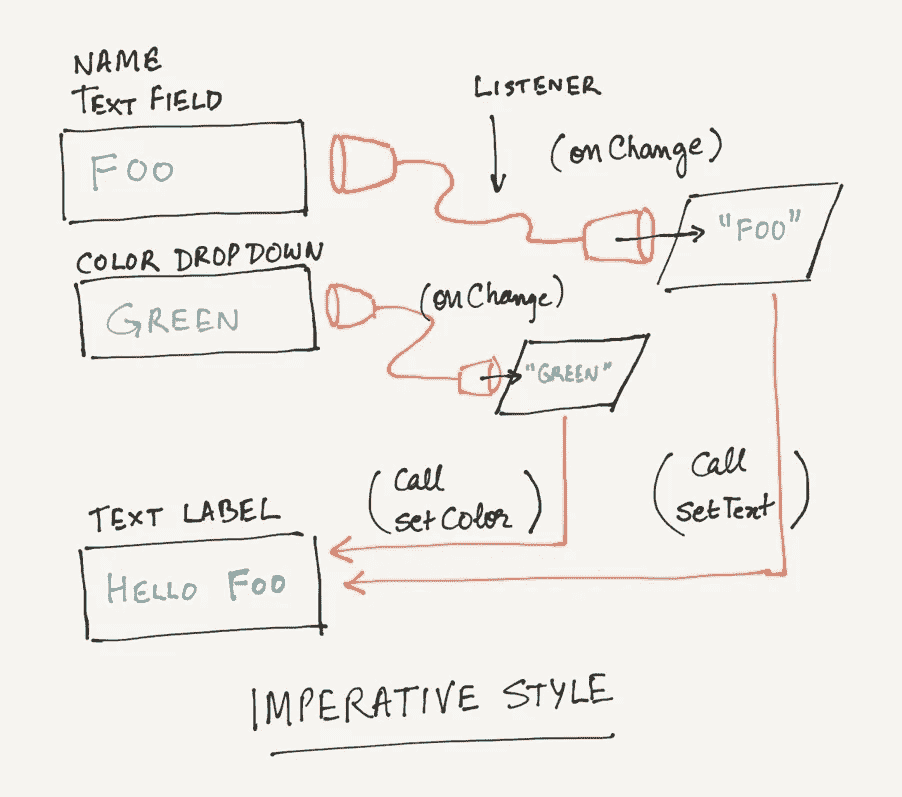 NAME
TEXT FIELD
FOO
LISTENER
(onChange)
"FOO"
COLOR DROPDOWN
GREEN
(onChange)
"GREEN"
(Call
setColor)
(Call
setText)
TEXT LABEL
HELLO FOO
IMPERATIVE STYLE